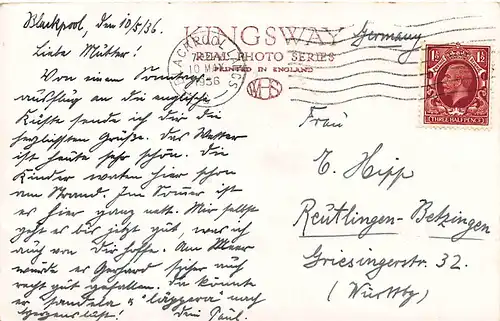 Blackpool, den 10/5/36.
Liebe Mutter!
Von einem Sonntags-
ausflug an die englische
Küste sende ich dir die
herzlichsten Grüße. Das Wetter
ist heute sehr schön. Die
Kinder waten hier schon
am Strand. Im Sommer ist
es hier ganz nett. Mir selbst
geht es bis jetzt gut, was ich
auch von dir hoffe. Am Meer
würde es Gerhard sicher auch
recht gut gefallen. Da könnte
er sandeln & "läppera" nach
Herzenslust! Dein Paul.
KINGSWAY
REAL PHOTO SERIES
PRINTED IN ENGLAND
WHS
BLACKPOOL
10 MAY
1936
Germany
1½ 1½
THREE HALFPENCE
Frau
E. Hipp
Reutlingen-Betzingen
Griesingerstr. 32.
(Württbg)